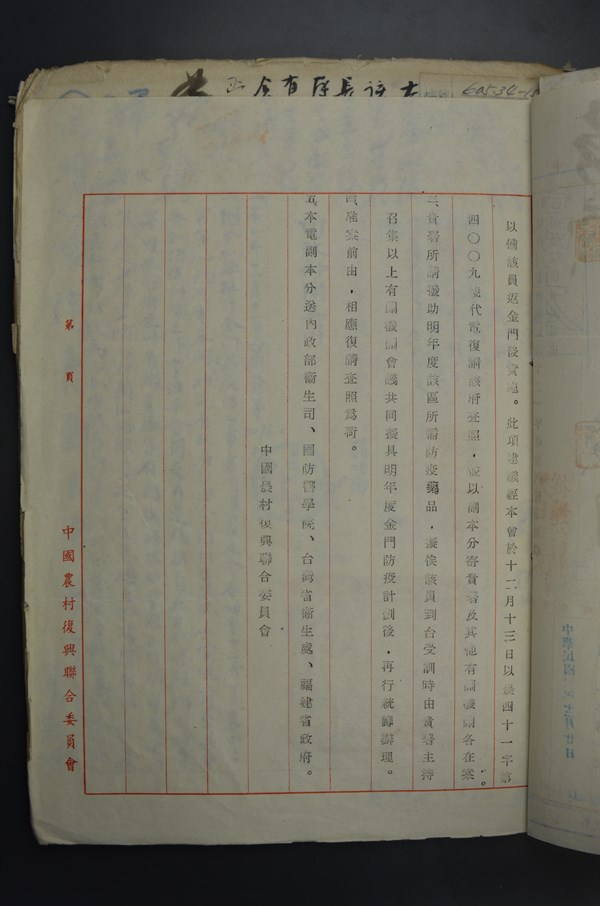 以備該員返金門後實施。此項建議經本會於十二月十三日以農四十一字第
四〇〇九號代電復請該府查照,並以副本分寄貴署及其他有關機關各在案。
三、貴署所請援助明年度該區所需防疫藥品,擬俟該員到台受訓時由貴署主持
召集以上有關機關會議共同擬具明年度金門防疫計劃後,再行統籌辦理。
四、准案前由,相應復請查照爲荷。
五、本電副本分送內政部衛生司、國防醫學院、台灣省衛生處、福建省政府。
中國農村復興聯合委員會
第 頁
中國農村復興聯合委員會